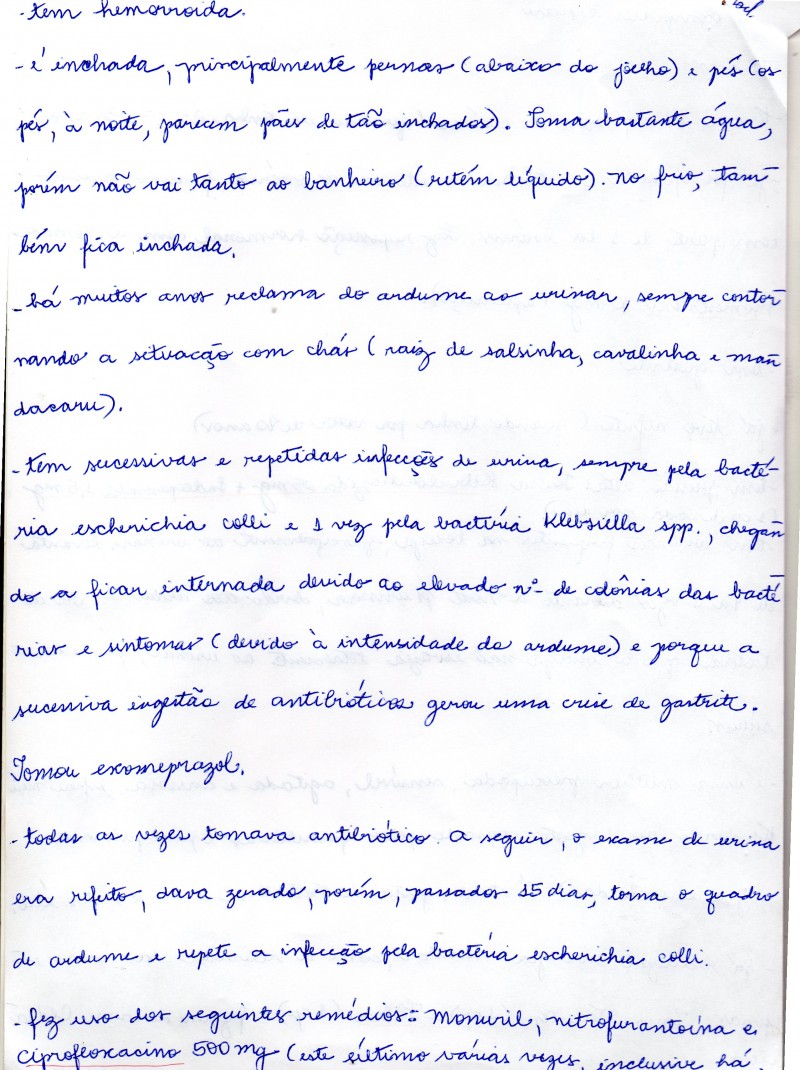 - tem hemorroida.
- é inchada, principalmente pernas (abaixo do joelho) e pés (os
pés, à noite, parecem pães de tão inchados). Toma bastante água,
porém não vai tanto ao banheiro (retém líquido). No frio, tam
bém fica inchada.
- há muitos anos reclama do ardume ao urinar, sempre contor
nando a situacção com chás (raiz de salsinha, cavalinha e man
dacaru).
- tem sucessivas e repetidas infecções de urina, sempre pela bacté-
ria escherichia colli e 1 vez pela bactéria Klebsiella spp., chegan
do a ficar internada devido ao elevado nº de colônias das bacté
rias e sintomas (devido à intensidade do ardume) e porque a
sucessiva ingestão de antibióticos gerou uma crise de gastrite.
Tomou exomeprazol.
- todas as vezes tomava antibiótico. A seguir, o exame de urina
era refeito, dava zerado, porém, passados 15 dias, torna o quadro
de ardume e repete a infecção pela bactéria escherichia colli.
- fez uso dos seguintes remédios: Monuril, nitrofurantoína e
ciprofloxacino 500 mg (este último várias vezes, inclusive há